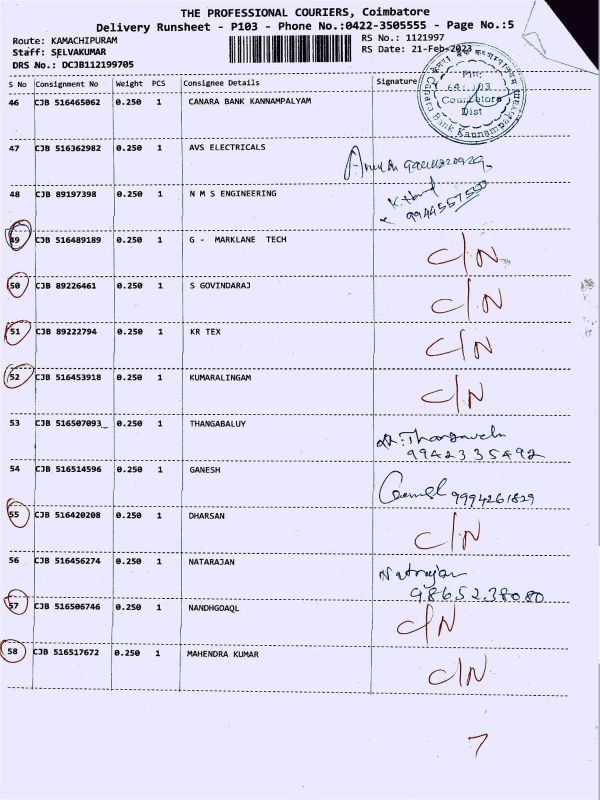 THE PROFESSIONAL COURIERS, Coimbatore
Delivery Runsheet - P103 - Phone No.:0422-3505555 - Page No.:5
Route: KAMACHIPURAM
RS No.: 1121997
Staff: SELVAKUMAR
RS Date: 21-Feb-2023
DRS No.: DCJB112199705
S No Consignment No Weight PCS Consignee Details Signature
46 CJB 516465062 0.250 1 CANARA BANK KANNAMPALYAM
Coimbatore
Dist
Canara Bank Kannampalayam
47 CJB 516362982 0.250 1 AVS ELECTRICALS
48 CJB 89197398 0.250 1 N M S ENGINEERING
9944557550
49 CJB 516489189 0.250 1 G - MARKLANE TECH C/N
50 CJB 89226461 0.250 1 S GOVINDARAJ C/N
51 CJB 89222794 0.250 1 KR TEX C/N
52 CJB 516453918 0.250 1 KUMARALINGAM C/N
53 CJB 516507093_ 0.250 1 THANGABALUY
Thangavelu
9942335492
54 CJB 516514596 0.250 1 GANESH
9994261829
55 CJB 516420208 0.250 1 DHARSAN C/N
56 CJB 516456274 0.250 1 NATARAJAN
Natrajan
9865238080
57 CJB 516506746 0.250 1 NANDHGOAQL C/N
58 CJB 516517672 0.250 1 MAHENDRA KUMAR C/N
7